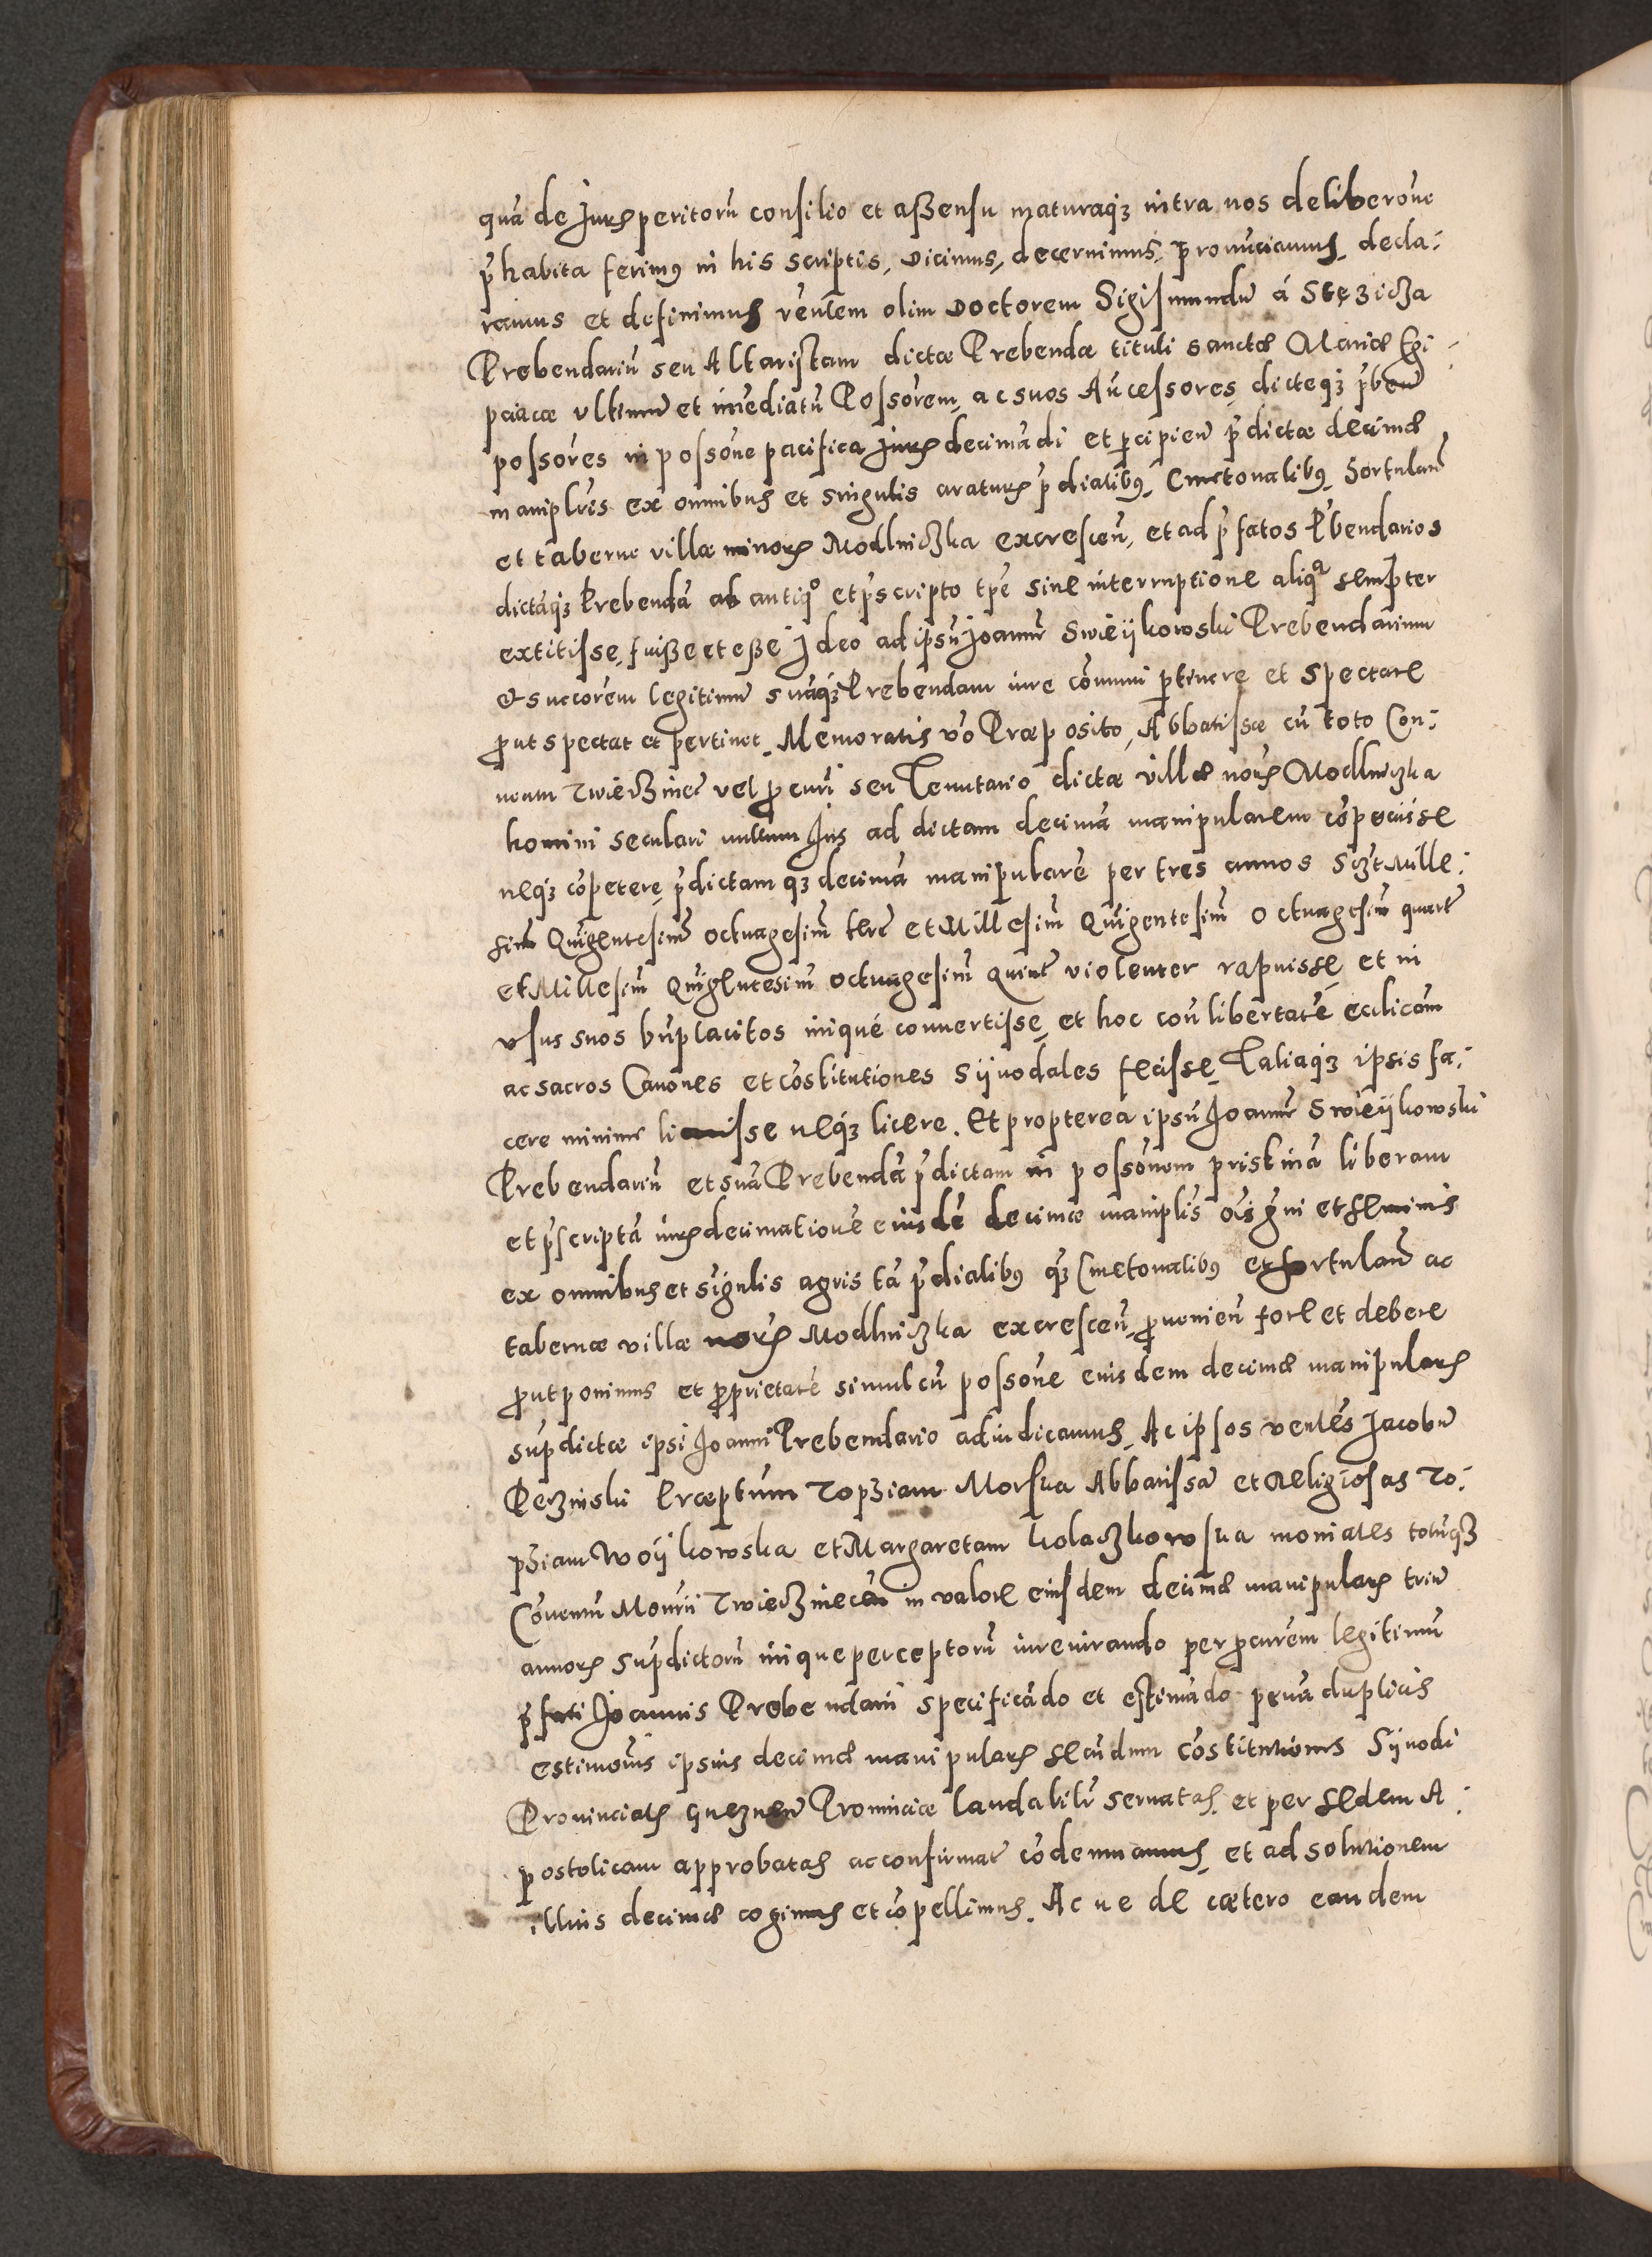 quā de Jurꝭperitorū consilio et aßensu maturaqꝫ intra nos deliberōne
p̄habita ferimꝰ in his scriptis, dicimus, decernimus, pronūciamus, decla:
ramus et definimus ven̄lem olim Doctorem Sigismundū á Stęzicza
Prebendariū seu Altaristam dictæ Prebendæ tituli sanctæ Mariæ Egi:
pciacæ ultimū et īmediatū Possorem, ac suos Añcessores, dicteqꝫ p̄bend̄
possōres in possōne pacifica Jurꝭ decimādi et ꝑcipien̄ p̄dictæ decimæ
maniplr̄is ex omnibus et singulis araturꝭ p̄dialibꝰ, Cmetonalibꝰ, Hortulan̄
et taberne villæ minorꝭ Modlniczka excrescen̄, et ad p̄fatos P̄bendarios
dictāqꝫ Prebendā ab antiqo et p̄scripto tp̄e sine interruptione aliqa semper
extitisse, fuiße et eße Ideo ad ipsū Joannē Swieijkowski Prebendarium
& succorem legitimū suāqꝫ Prebendam iure cōmuni ꝑtinere et spectare
ꝓut spectat et pertinet. Memoratis v̄o Præposito, Abbatissæ cū toto Con:
uentu Zwierzinec̄ vel ꝓcuri seu Tenutario dictæ villæ norꝭ Modlniczka
homini seculari nullum Jus ad dictam decimā manipularem cōpeciisse
neqꝫ cōpetere, p̄dictamqꝫ decimā manipularē per tres annos sczt Mille:
simū Quīgentesimū octuagesimū terc̄ et Millesimū Quīgentesimū octuagesimū quart̄
et Millesimū Quīgentesimū octuagesimū quint̄ violenter rapuisse, et in
vsus suos bn̄placitos iniqué conuertisse, et hoc con̄ libertatē eccl̄icam
ac sacros Canones et cōstitutiones Sijnodales fecisse, Taliaqꝫ ipsis fa:
cere minime licuisse neqꝫ licere. Et propterea ipsū Joannē Swieijkowski
Prebendariū et suā Prebendā p̄dictam in possōnem pristinā liberam
et p̄scriptā iurꝭ decimationē eiusdē decimæ maniplis oīs gni et seminis
ex omnibus et sīgulis agris tā p̄dialibꝰ qꝫ Cmetonalibꝰ et hortulan̄ ac
tabernæ villæ norꝭ Modlniczka excrescen̄, ꝓuenien̄ fore et debere
ꝓut ponimus et ꝓprietatē simul cū possōne eiusdem decimæ manipularꝭ
sup̄dictæ ipsi Joanni Prebendario adiudicamus, Ac ipsos ven̄les Jacobū
Pęzniski Præptum Zopziam Morska Abbatissā et Religiosas Zo:
pziam Woijkowska et Margaretam Kolaczkowska moniales totūqꝫ
Cōuentū Monr̄ii Zwierziniecen̄ in valore eiusdem decimæ manipularꝭ triū
annorꝭ sup̄dictorū inique perceptorū iureiurando per ꝓcurēm legitimū
p̄fati Joannis Prebendarii specificādo et estimādo pena duplicis
estimōnis ipsius decimæ manipularꝭ secūdum cōstitutiones Sijnodi
Prouincialꝭ Gneznen̄ Prouinciæ laudabilr̄ seruatas, et per sedem A:
postolicam approbatas ac confirmat̄ cōdemnamus, et ad solutionem
illius decimæ cogimus et cōpellimus. Ac ne de cætero eandem